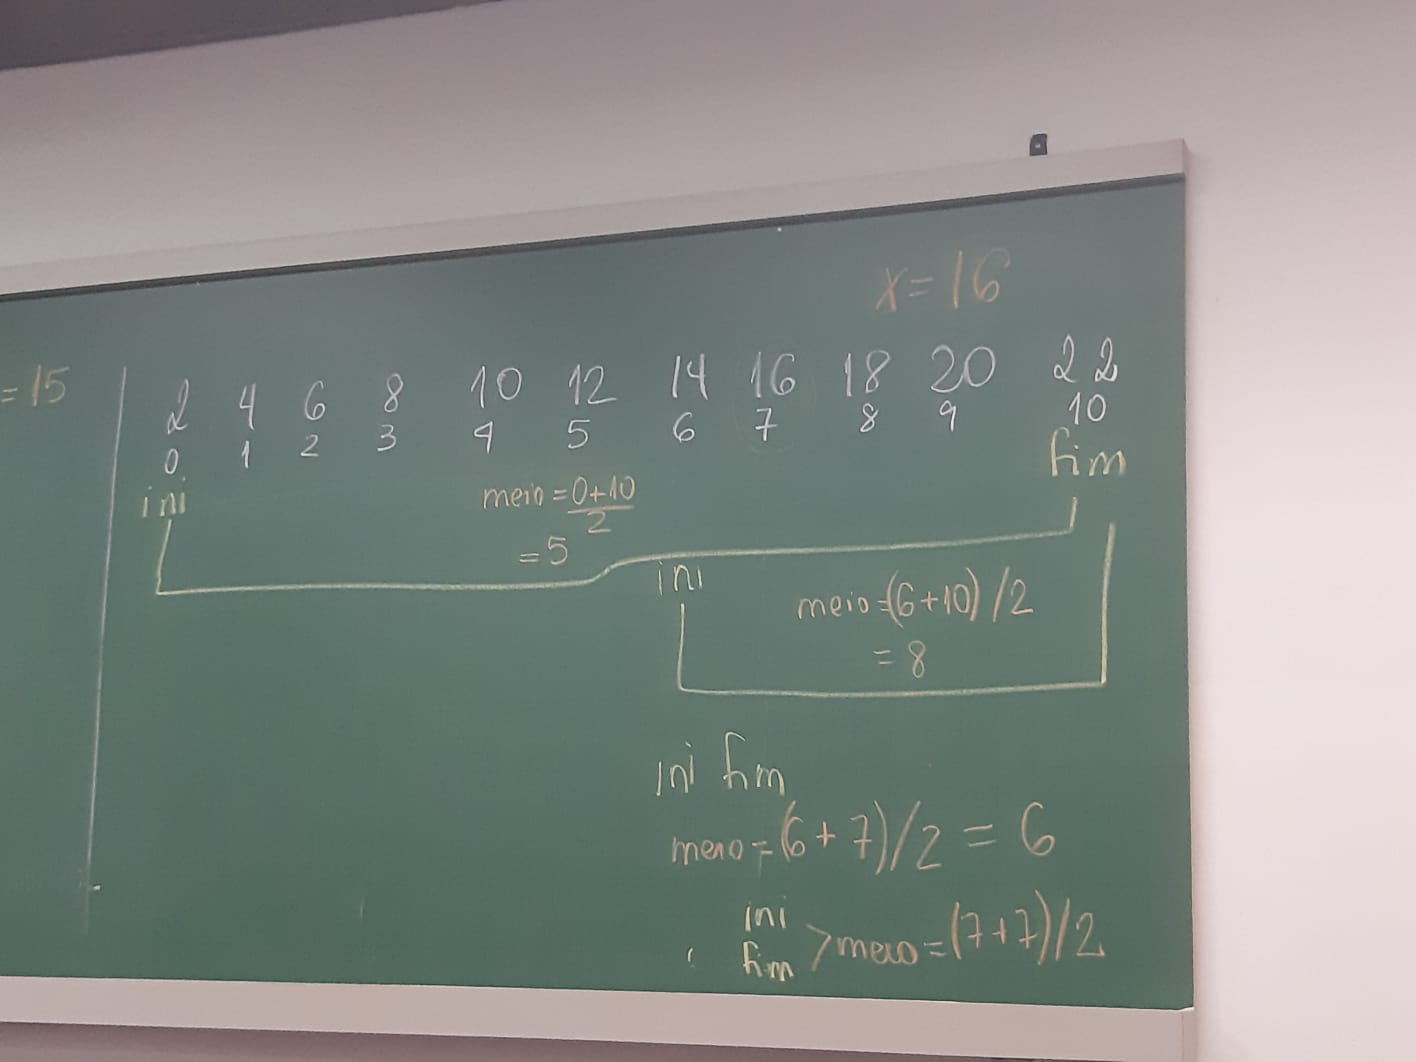 x=16
=15
2 4 6 8 10 12 14 16 18 20 22
0 1 2 3 4 5 6 7 8 9 10
ini fim
meio=0+10
2
=5
ini
meio=(6+10)/2
=8
ini fim
meio=(6+7)/2=6
ini
fim >meio=(7+7)/2